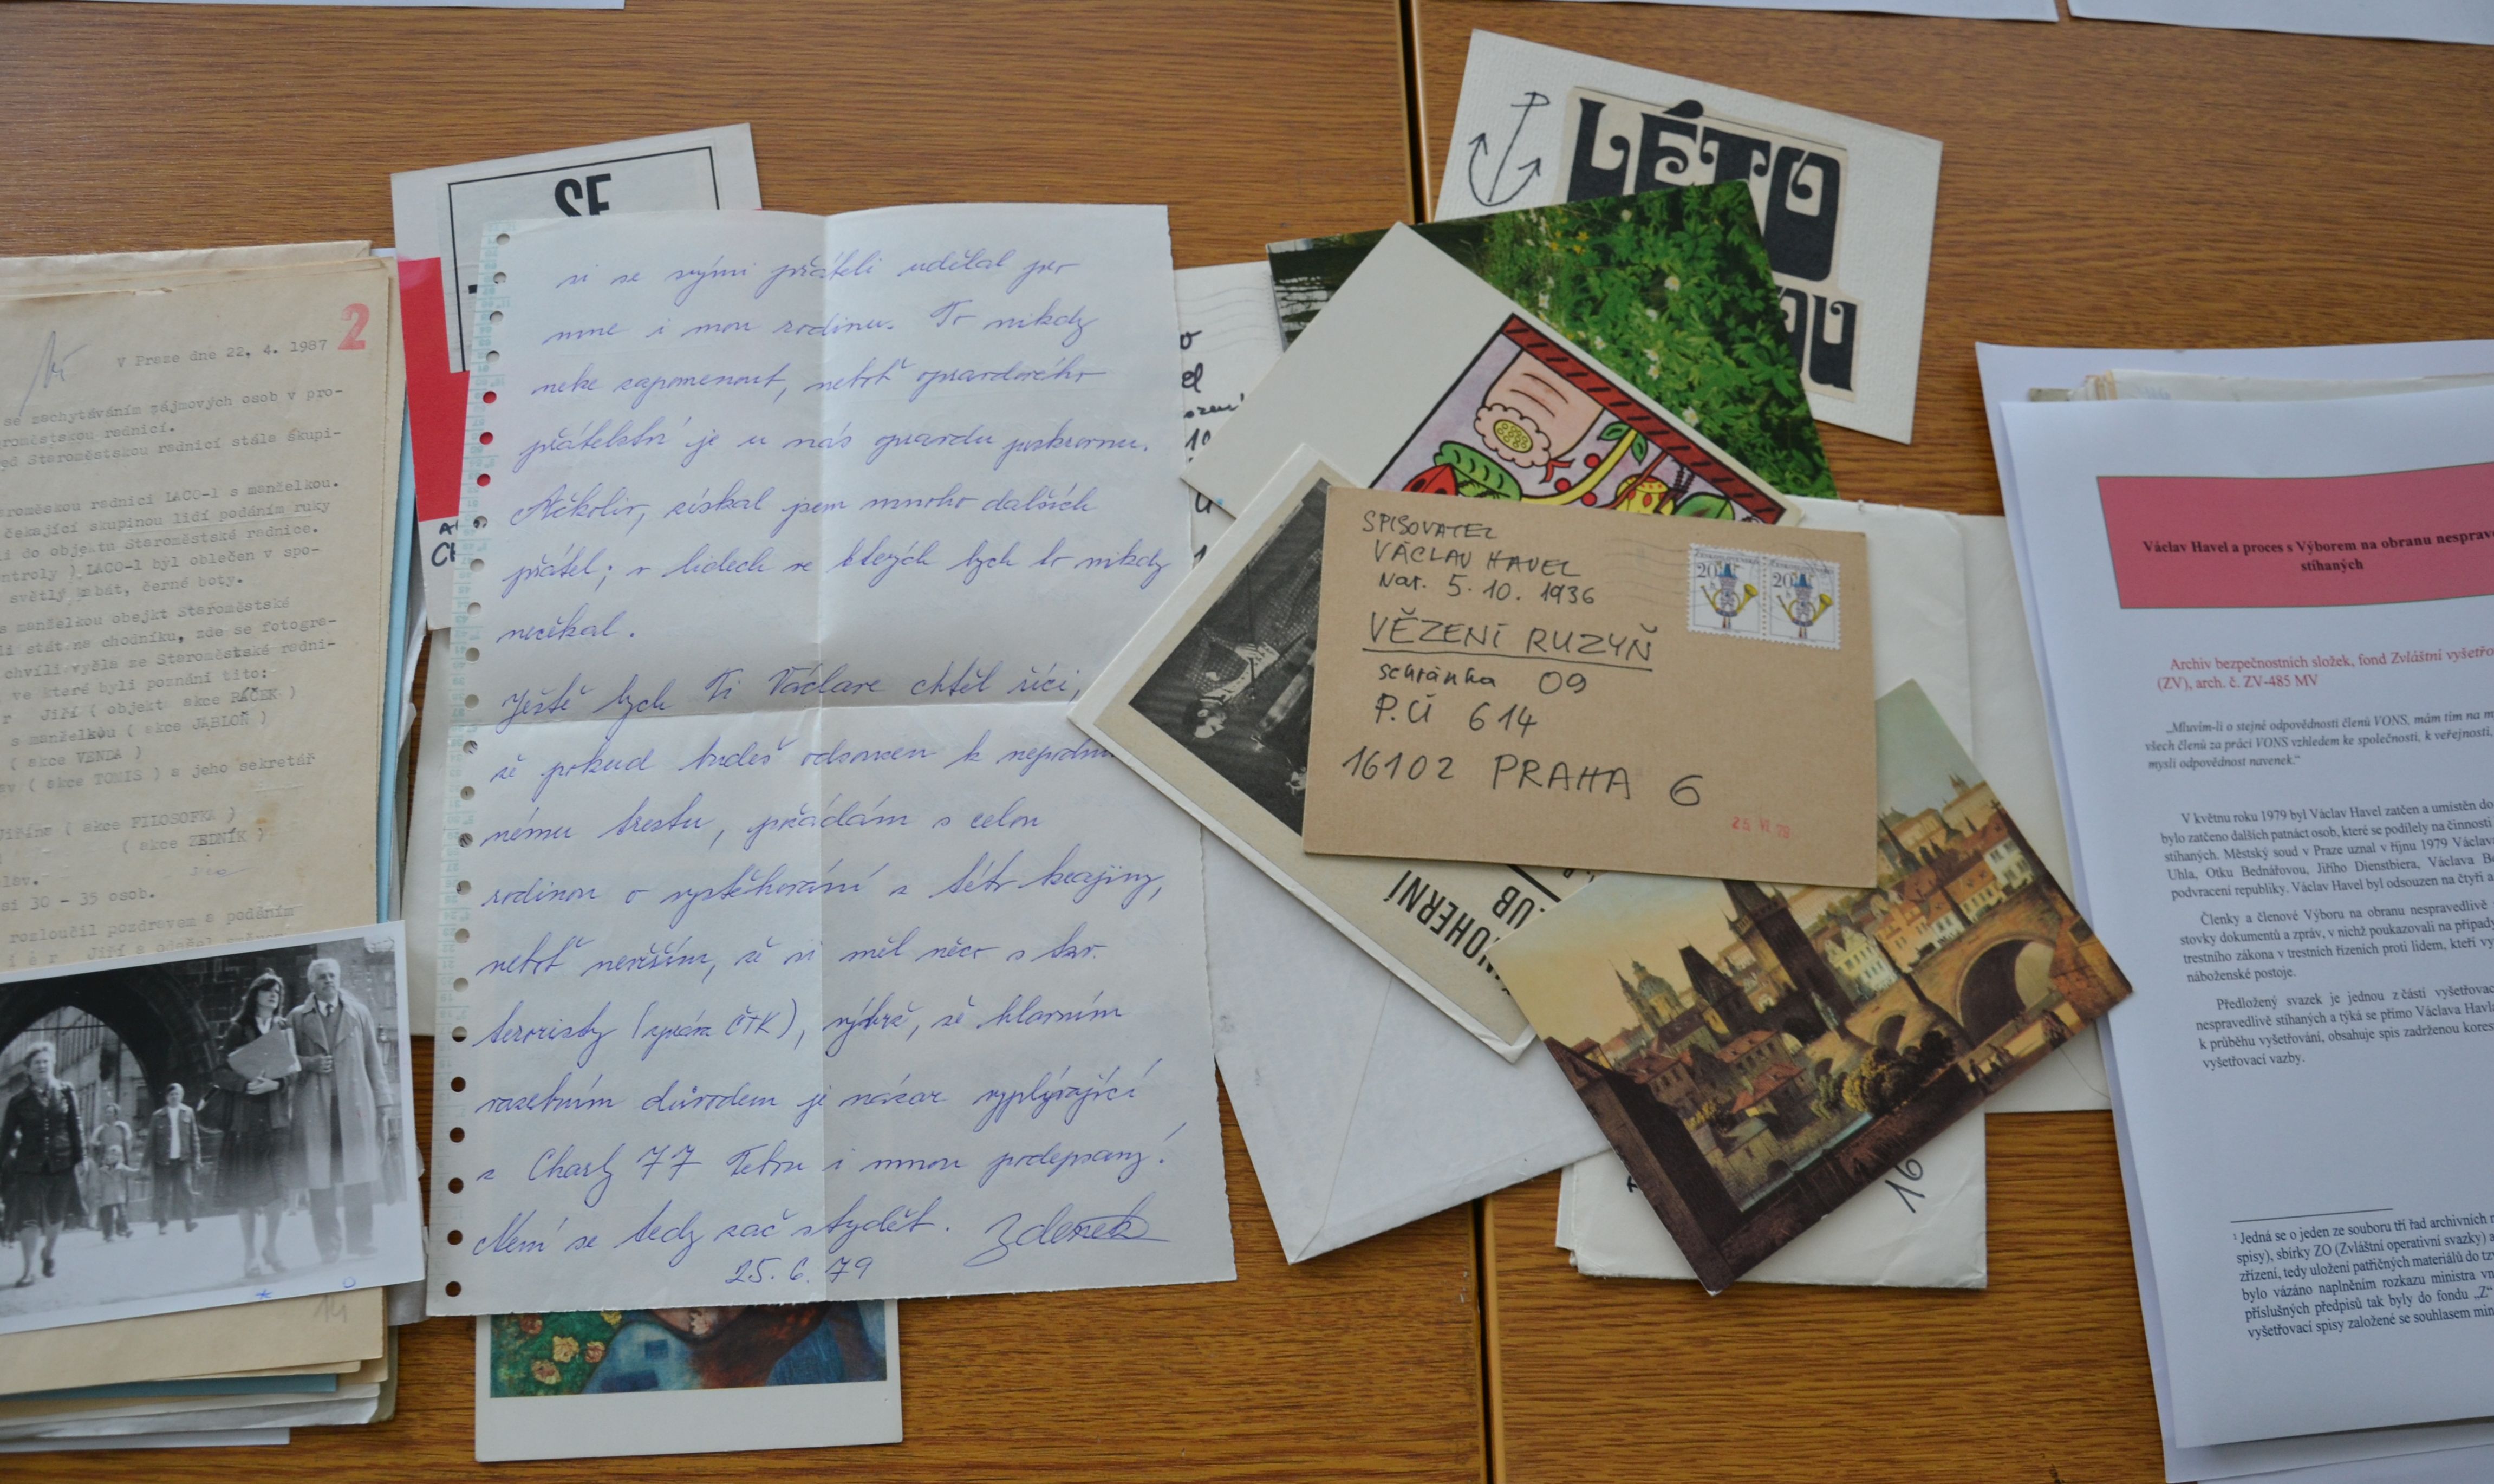 2
V Praze dne 22. 4. 1987
se zachytáváním zájmových osob v pro-
roměstskou radnicí.
ed Staroměstskou radnicí stála skupi-
aroměskou radnicí LACO-1 s manželkou.
čekající skupinou lidí podáním ruky
i do objektu Staroměstské radnice.
ntroly ) LACO-1 byl oblečen v spo-
světlý kabát, černé boty.
s manželkou obejkt Staroměstské
li stát na chodníku, zde se fotogra-
chvíli vyšla ze Staroměstské radni-
ve které byli poznáni tito:
r Jiří ( objekt akce RÁČEK )
s manželkou ( akce JABLOŇ )
( akce VENDA )
av ( akce TOMIS ) a jeho sekretář
Jiřina ( akce FILOSOFKA )
( akce ZEDNÍK )
lav.
si 30 - 35 osob.
rozloučil pozdravem a podáním
i é r Jiří a odešel
14
SE
si se svými přáteli udělal pro
mne i mou rodinu. To nikdy
nelze zapomenout, neboť opravdového
přátelství je u nás opravdu poskrovnu.
Ačkoliv, získal jsem mnoho dalších
přátel; v lidech ve kterých bych to nikdy
nečekal.
Ještě bych Ti Václave chtěl říci,
že pokud budeš odsouzen k nepodmí
němu trestu, požádám s celou
rodinou o vystěhování z této krajiny,
neboť nevěřím, že si měl něco s tzv.
teroristy (zpráva ČTK), nýbrž, že hlavním
vazebním důvodem je názor vyplývající
z Charty 77 Tebou i mnou podepsaný!
Není se tedy zač stydět. Zdenek
25. 6. 79
LÉTO
OU
SPISOVATEL
VÁCLAV HAVEL
Nar. 5. 10. 1936
VĚZENÍ RUZYŇ
schránka 09
P.Ú 614
16102 PRAHA 6
20
20
25 VI 79
NOHERNÍ
UB
16
Václav Havel a proces s Výborem na obranu nesprave
stíhaných
Archiv bezpečnostních složek, fond Zvláštní vyšetřo
(ZV), arch. č. ZV-485 MV
„Mluvím-li o stejné odpovědnosti členů VONS, mám tím na m
všech členů za práci VONS vzhledem ke společnosti, k veřejnosti,
mysli odpovědnost navenek.“
V květnu roku 1979 byl Václav Havel zatčen a umístěn do
bylo zatčeno dalších patnáct osob, které se podílely na činnosti
stíhaných. Městský soud v Praze uznal v říjnu 1979 Václava
Uhla, Otku Bednářovou, Jiřího Dienstbiera, Václava Be
podvracení republiky. Václav Havel byl odsouzen na čtyři a
Členky a členové Výboru na obranu nespravedlivě
stovky dokumentů a zpráv, v nichž poukazovali na případy
trestního zákona v trestních řízeních proti lidem, kteří vy
náboženské postoje.
Předložený svazek je jednou z částí vyšetřovac
nespravedlivě stíhaných a týká se přímo Václava Havla
k průběhu vyšetřování, obsahuje spis zadrženou kores
vyšetřovací vazby.
1 Jedná se o jeden ze souboru tří řad archivních
spisy), sbírky ZO (Zvláštní operativní svazky) a
zřízení, tedy uložení patřičných materiálů do tzv
bylo vázáno naplněním rozkazu ministra vn
příslušných předpisů tak byly do fondu „Z“
vyšetřovací spisy založené se souhlasem min